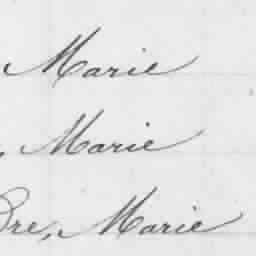 Marie
, Marie
Bre, Marie